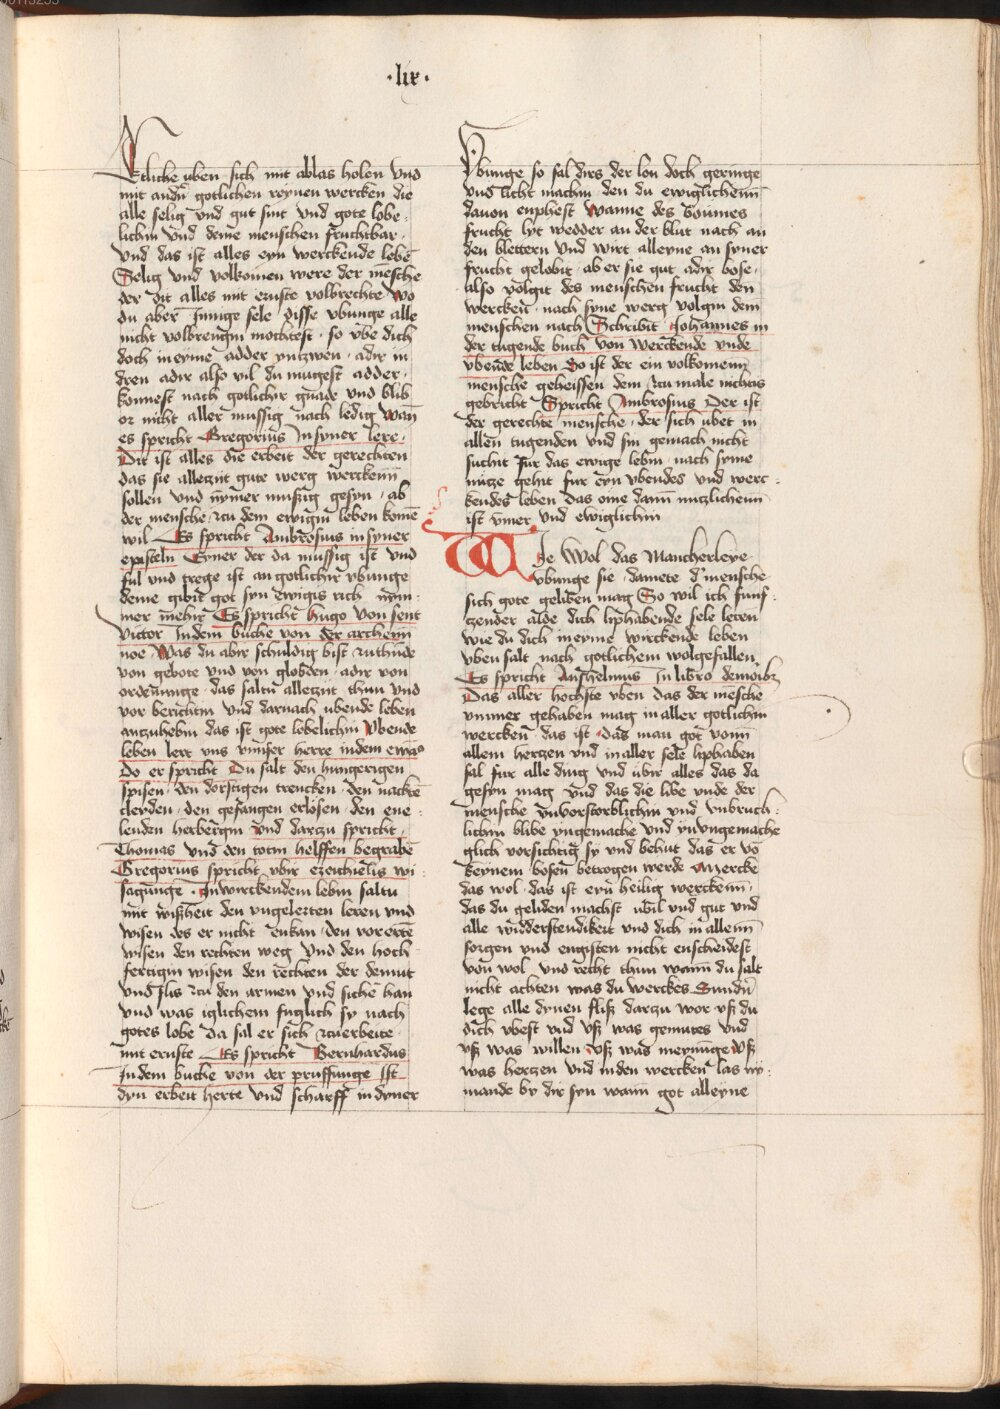 ·lix·
Etliche uben sich mit ablas holen vnd
mit andn̄ gotlichen reynen wercken die
alle selig vnd gut sint vnd gote lobe-
lichin vnd deme menschen fruchtbar·
vnd das ist alles eyn werckende lebē
Selig vnd volkomen were der mēsche
der dit alles mit ernste volbrechte wo
du aber Jnnige sele · disse vbunge alle
nicht volbrengin mochtest · so vbe dich
doch in eyme adder yn zwen · adir in
dren adir also vil du mugest adder·
konnest nach gotlichir gnade vnd blib
or nicht aller mussig nach ledig wan̄
es spricht Gregorius Jn syner lere·
Dit ist alles die erbeit der gerechten
das sie alleziit gute werg werckenn̄
sollen vnd nȳmer mußig gesyn · ab
der mensche zcu dem ewigin leben komē
wil Es spricht Ambrosius in syner
episteln Eyner der da mussig ist vnd
ful vnd trege ist an gotlichir vbunge
deme gibit got syn ewigis rich nȳm-
mer mehir Es spricht hugo von sent
victor Jn dem buche von der archenn̄
noe · Was du abir schuldig bist zcuthunde
von gebote vnd von globden · adir von
ordenunge · das saltu alleziit thun vnd
vor berichtin vnd darnach ubende leben
anzuhebin das ist gote lobelichin Vbende
leben lert vns vnnser herre in dem ewā⁰
Do er spricht Du salt den hungerigen
spisen · den dorstigen trencken · den nacketē
cleyden · den gefangen erlosen · den ene-
lenden herbergin vnd darczu spricht·
Thomas vnd den totin helffen begrabē
Gregorius spricht vbir ezechielis wi-
sagunge · Jn wirckendem lebin saltu
mit wißheit den vngelerten leren vnd
wisen des er nicht enkan · den vorerrtē
wisen den rechten weg vnd den hoch-
fertigin wisen den rechten der demut
vnd flis zcu den armen vnd sichē han
vnd was iglichem fuglich sy nach
gotes lobe da sal er sich zcuerbeite·
mit ernste Es spricht Bernhardus
Jn dem buche von der pruffunge Ist
dyn erbeit herte vnd scharff in dyner
Vbunge so sal dirs der lon doch geringe
vnd licht machin den du ewiglichenn̄
dauon enphest Wanne des boumes
frucht lyt wedder an der blut nach an
den blettern vnd wirt alleyne an syner
frucht gelobit ab er sie gut adir bose·
also volgit des menschen frucht den
wercken · nach syne werg volgin dem
menschen nach Schribit Johannes in
der tugende buch von werckende vnde
vbende leben So ist der ein volkomenn̄
mensche geheissen dem zcu male nichtis
gebricht Spricht Ambrosius Der ist
der gerechte mensche · der sich ubet in
allen tugenden vnd sin gemach nicht
suchit Fur das ewige lebin · nach syme
nutze gehit fur eyn vbendes vnd werc-
kendes leben das ome dann nutzlichenn̄
ist ȳmer vnd ewiglichin
Wie Wol das Mancherleye
vbunge sie · damete d' mensche
sich gote geliben mag So wil ich funf-
czender alde dich liphabende sele leren
wie du dich in eyme wirckende leben
vben salt nach gotlichem wolgefallen.
Es spricht Anshelmus Jn libro de morib3
Das aller hochste vben das der mēsche
vmmer gehaben mag in aller gotlichin
wercken das ist das man got vonn̄
allem hertzen vnd in aller sele liphaben
sal fur alle ding vnd ubir alles das da
gesyn mag vnd das die libe vnde der
mensche vnvorstorblichin vnd vnbruch-
lichin blibe yn gemache vnd yn vngemache
glich vorsichtig sy vnd behut das er vō
keynem bosen betrogen werde Mercke
das wol · das ist eyn heilig werckenn̄·
das du geliden machst ubil vnd gut vnd
alle widderstendikeit vnd dich in allenn̄
sorgen vnd engisten nicht enscheidest
von wol vnd recht thun wann du salt
nicht achten was du werckes Sundn̄
lege alle dynen fliß darzu wor uß du
dich vbest vnd vß was gemutes vnd
vß was willen vß was meynunge vß
was hertzen vnd in den wercken las ny-
mande by dir syn wann got alleyne